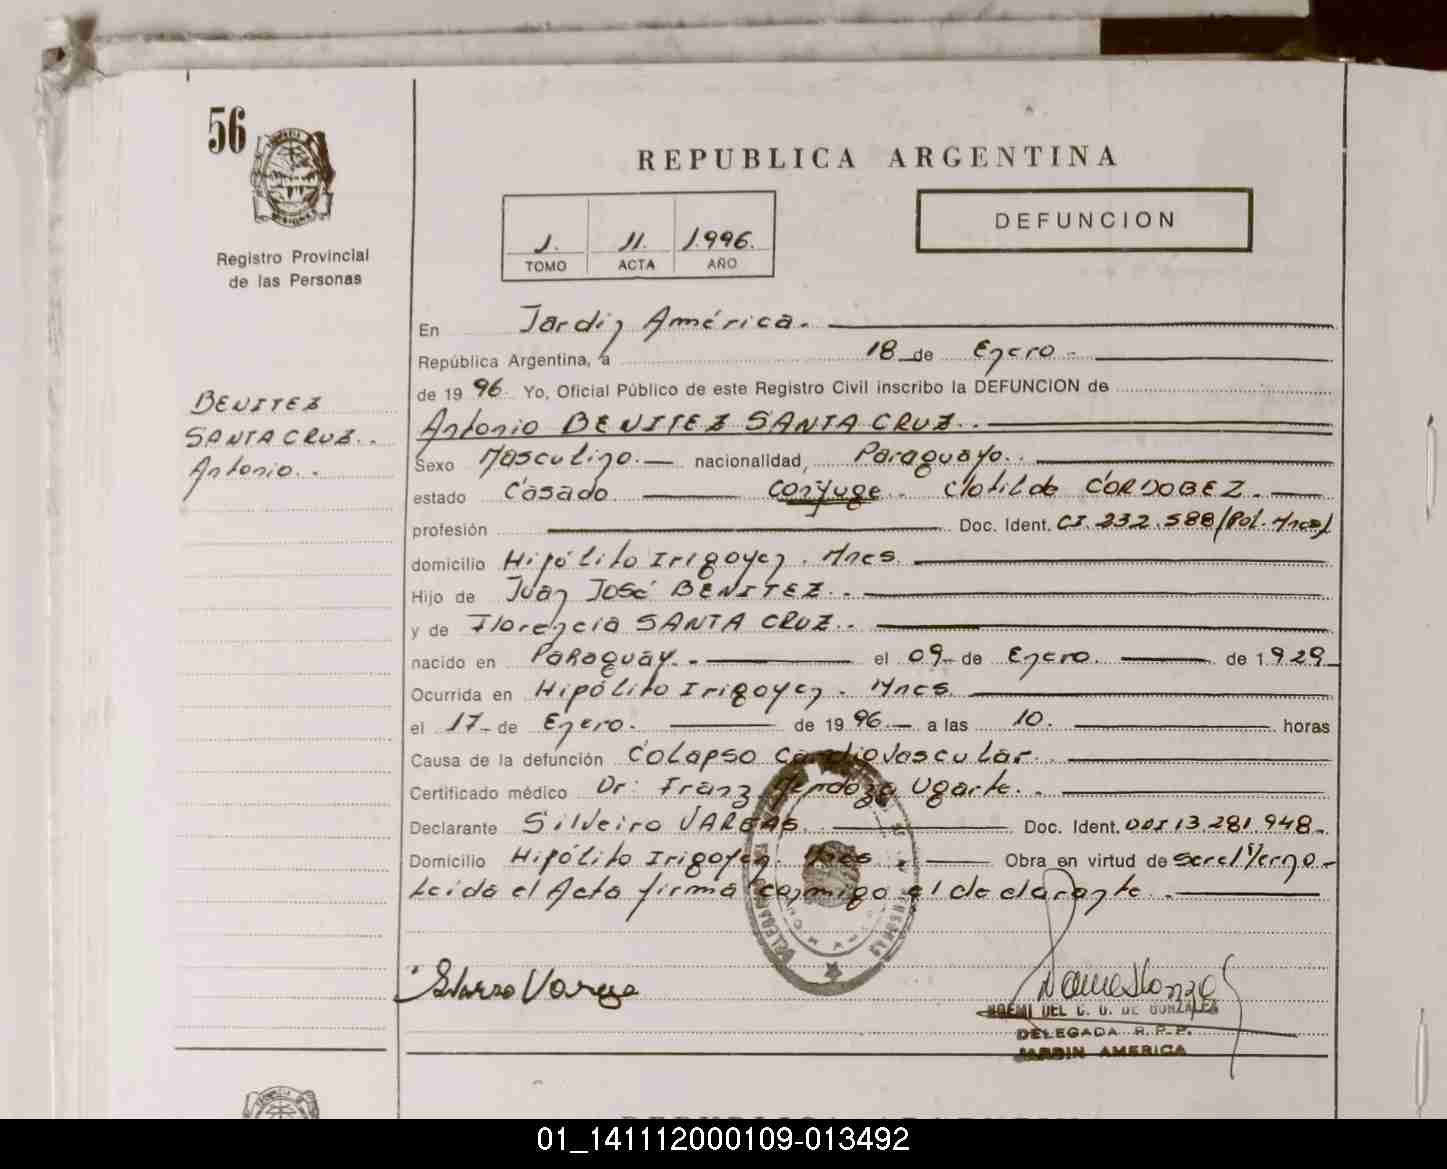 56
REPUBLICA ARGENTINA
1. 11. 1.996.
TOMO ACTA AÑO
DEFUNCION
Registro Provincial
de las Personas
BENITEZ
SANTA CRUZ..
Antonio..
En Jardin América.
República Argentina, a 18 de Enero.
de 19 96. Yo, Oficial Público de este Registro Civil inscribo la DEFUNCION de
Antonio BENITEZ SANTA CRUZ..
Sexo Masculino. nacionalidad, Paraguayo..
estado Casado conyuge. Clotilde CORDOBEZ.
profesión Doc. Ident. CI. 232.588/Pol. Mnes/
domicilio Hipólito Irigoyen. Mnes.
Hijo de Juan José BENITEZ..
y de Florencia SANTA CRUZ..
nacido en Paraguay.. el 09 de Enero. de 1.929
Ocurrida en Hipólito Irigoyen. Mnes.
el 17 de Enero. de 19 96. a las 10. horas
Causa de la defunción Colapso Cardiovascular.
Certificado médico Dr: Franz Mendoza Ugarte..
Declarante Silveiro VARGAS. Doc. Ident. DNI 13.281.948.
Domicilio Hipólito Irigoyen. Mnes. Obra en virtud de ser el Yerno.
Leida el Acta firma conmigo el declarante.
NOEMI DEL C. D. DE GONZALEZ
DELEGADA R.P.P.
JARDIN AMERICA
01_141112000109-013492